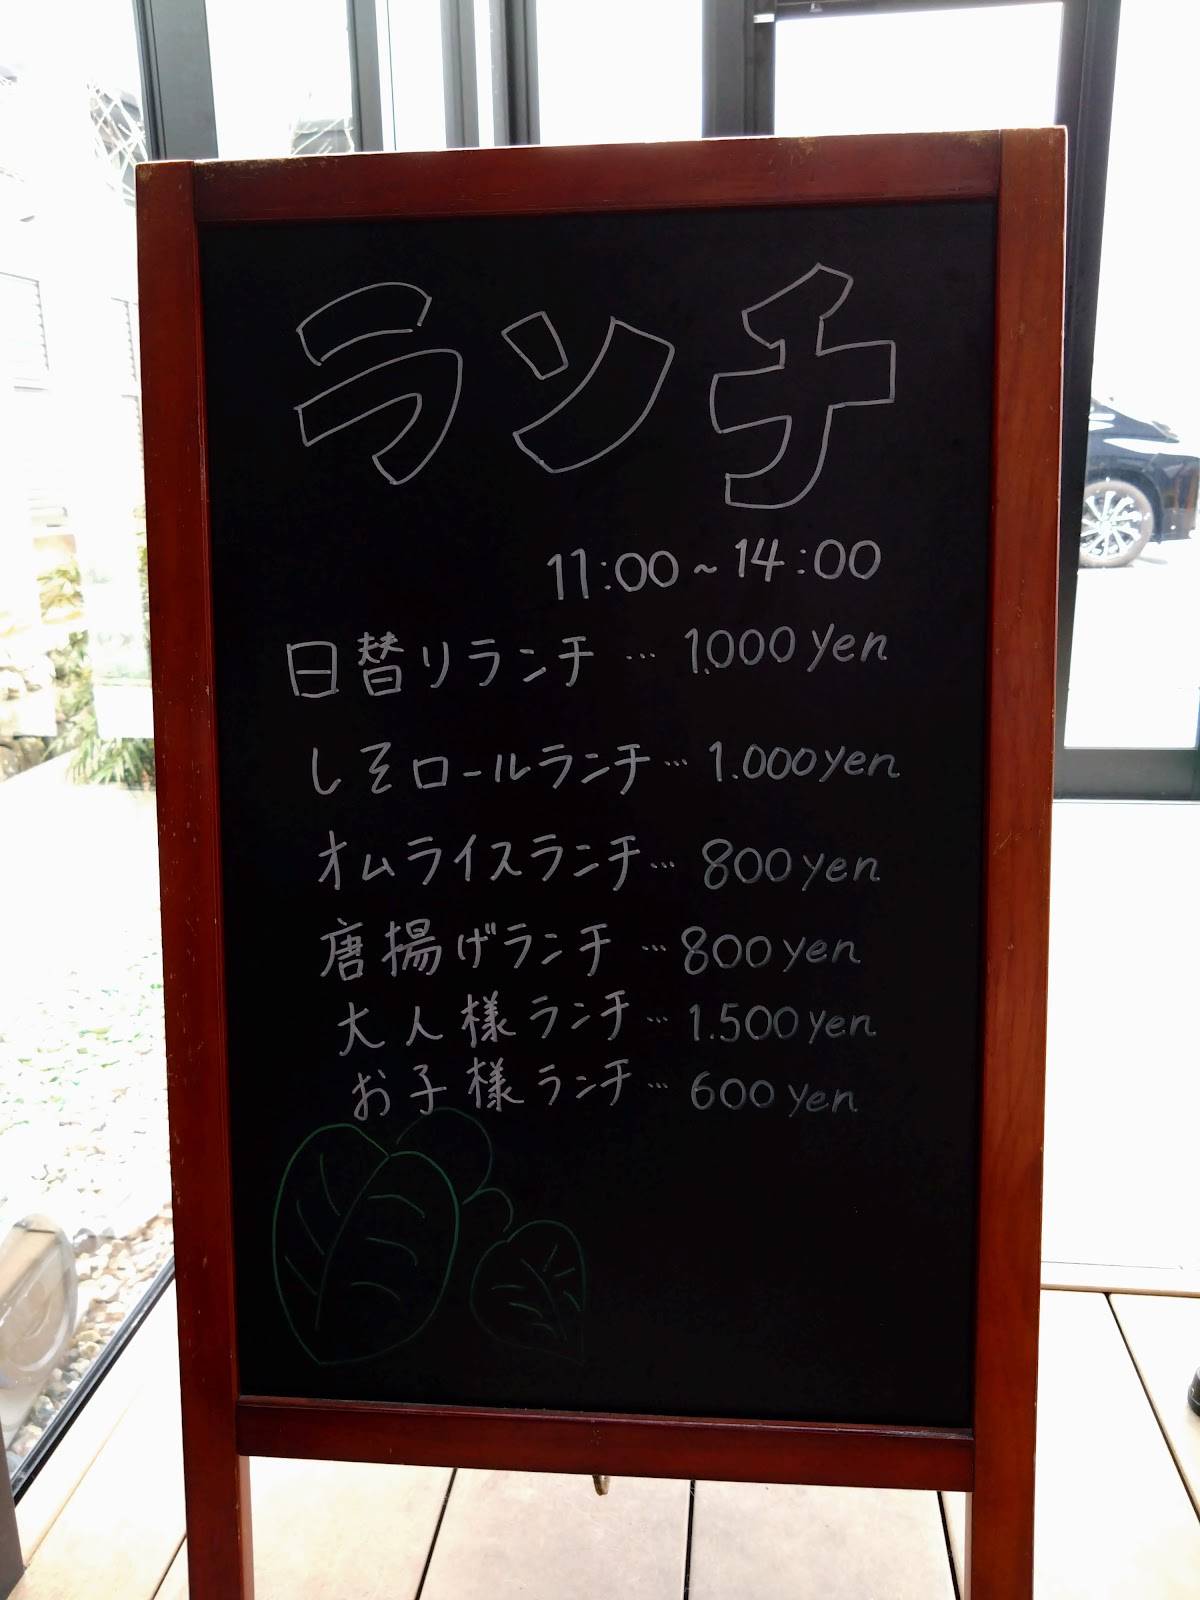 ランチ
11:00~14:00
日替りランチ … 1.000 yen
しそロールランチ … 1.000 yen
オムライスランチ … 800 yen
唐揚げランチ … 800 yen
大人様ランチ … 1.500 yen
お子様ランチ … 600 yen